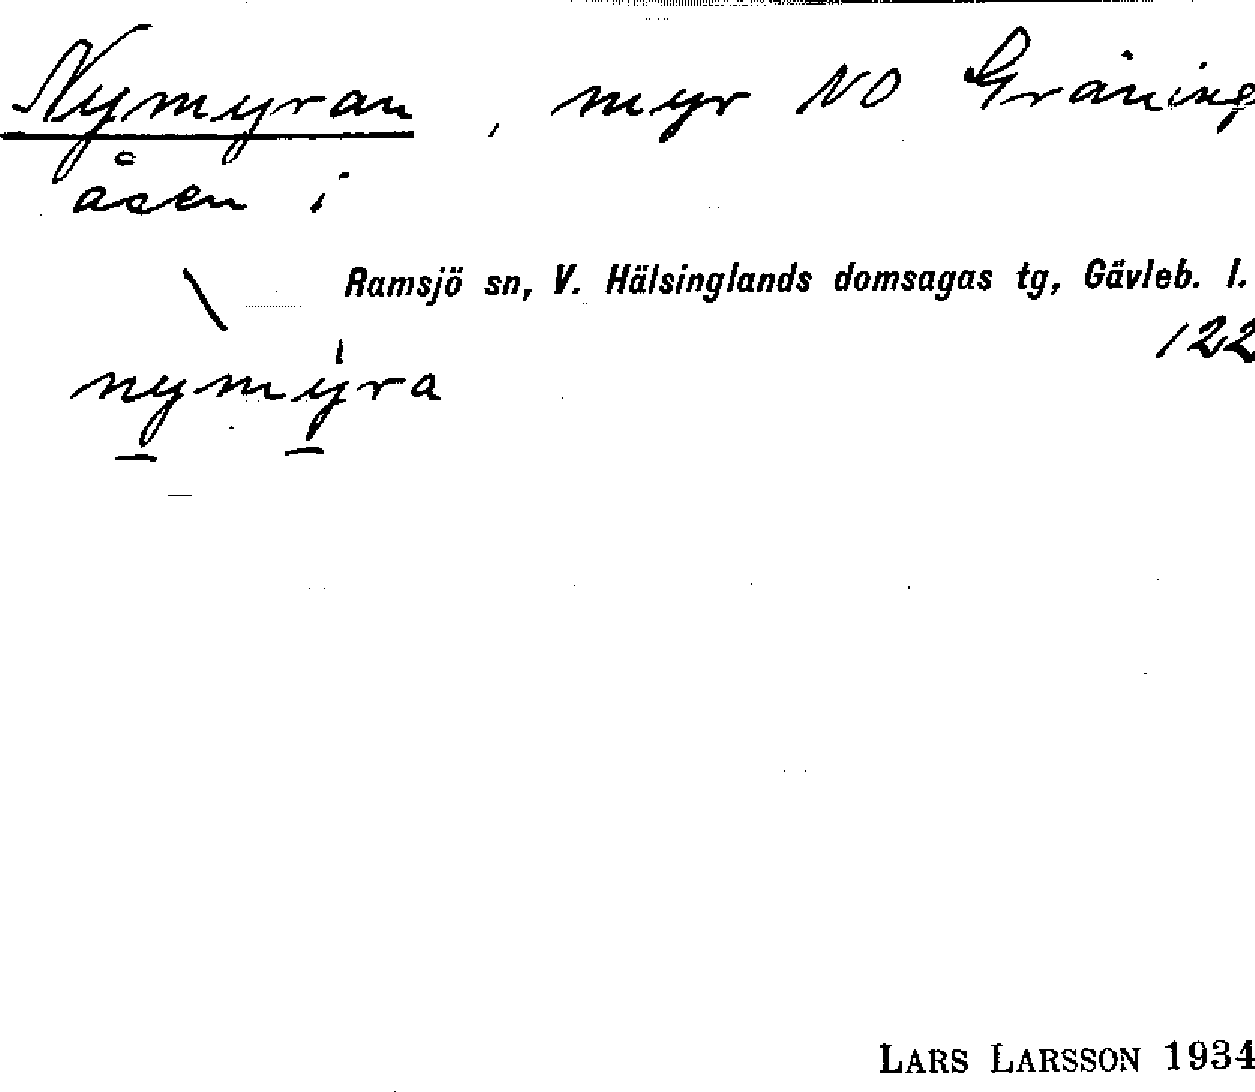 Nymyran, myr NO Gråning
åsen i
Ramsjö sn, V. Hälsinglands domsagas tg, Gävleb. l.
122
nymyra
LARS LARSSON 1934